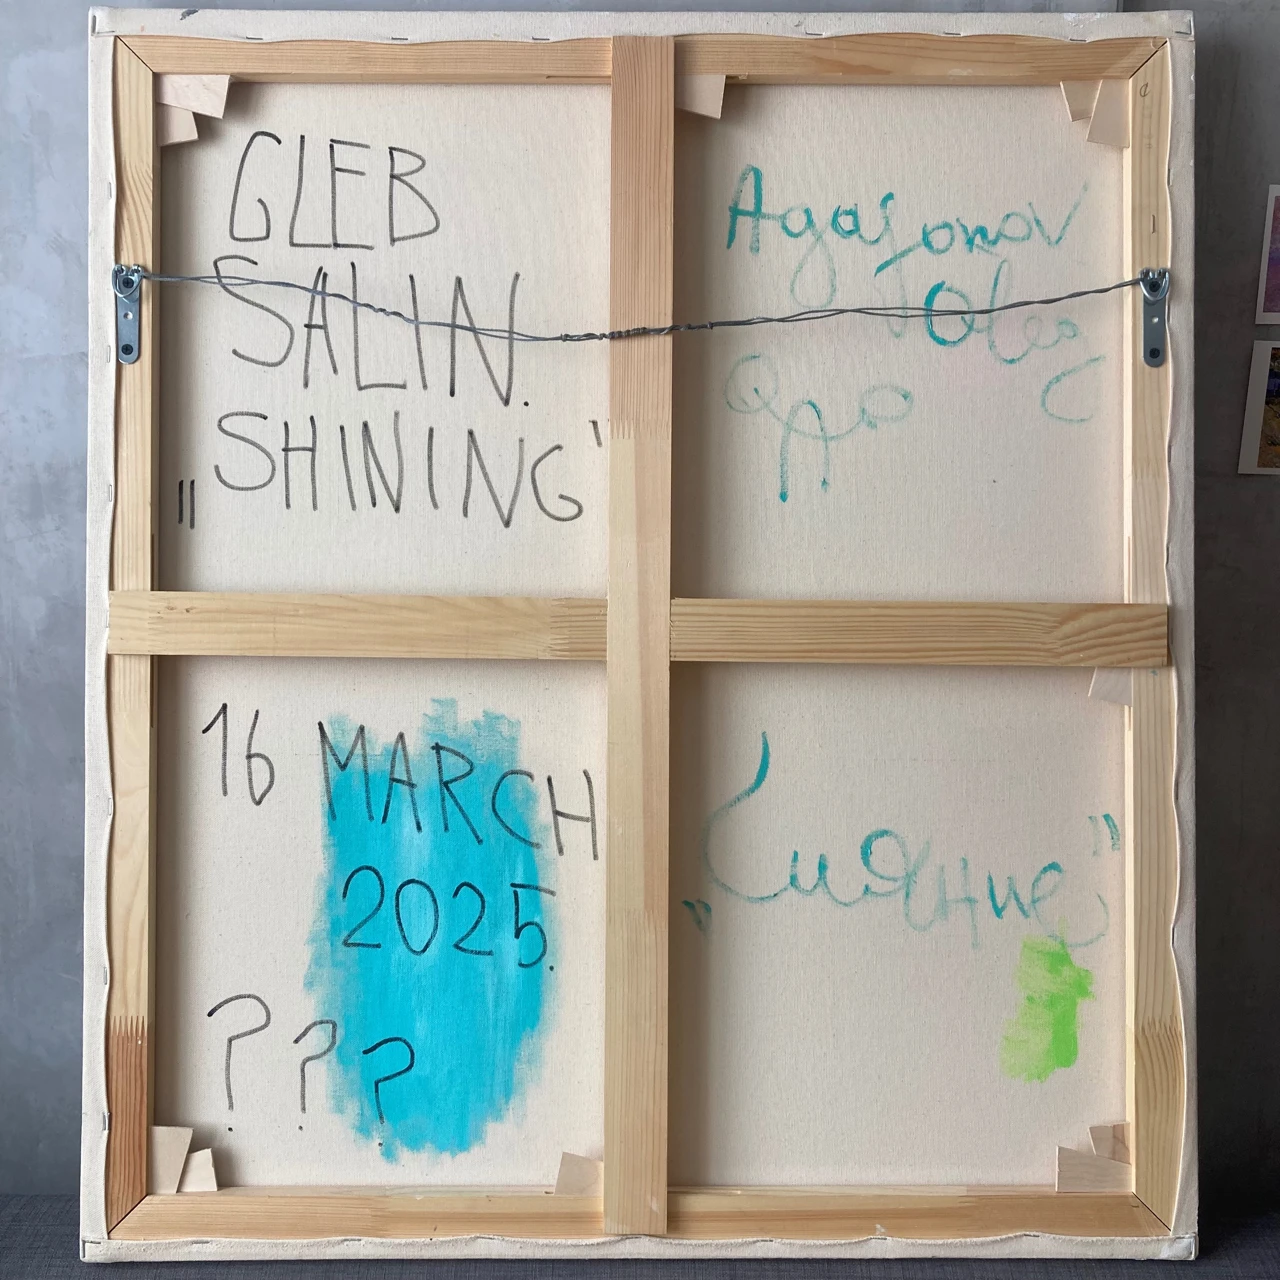 GLEB
SALIN.
„SHINING"
16 MARCH
2025.
? ? ?
Agafonov
Oleg
„Сияние"